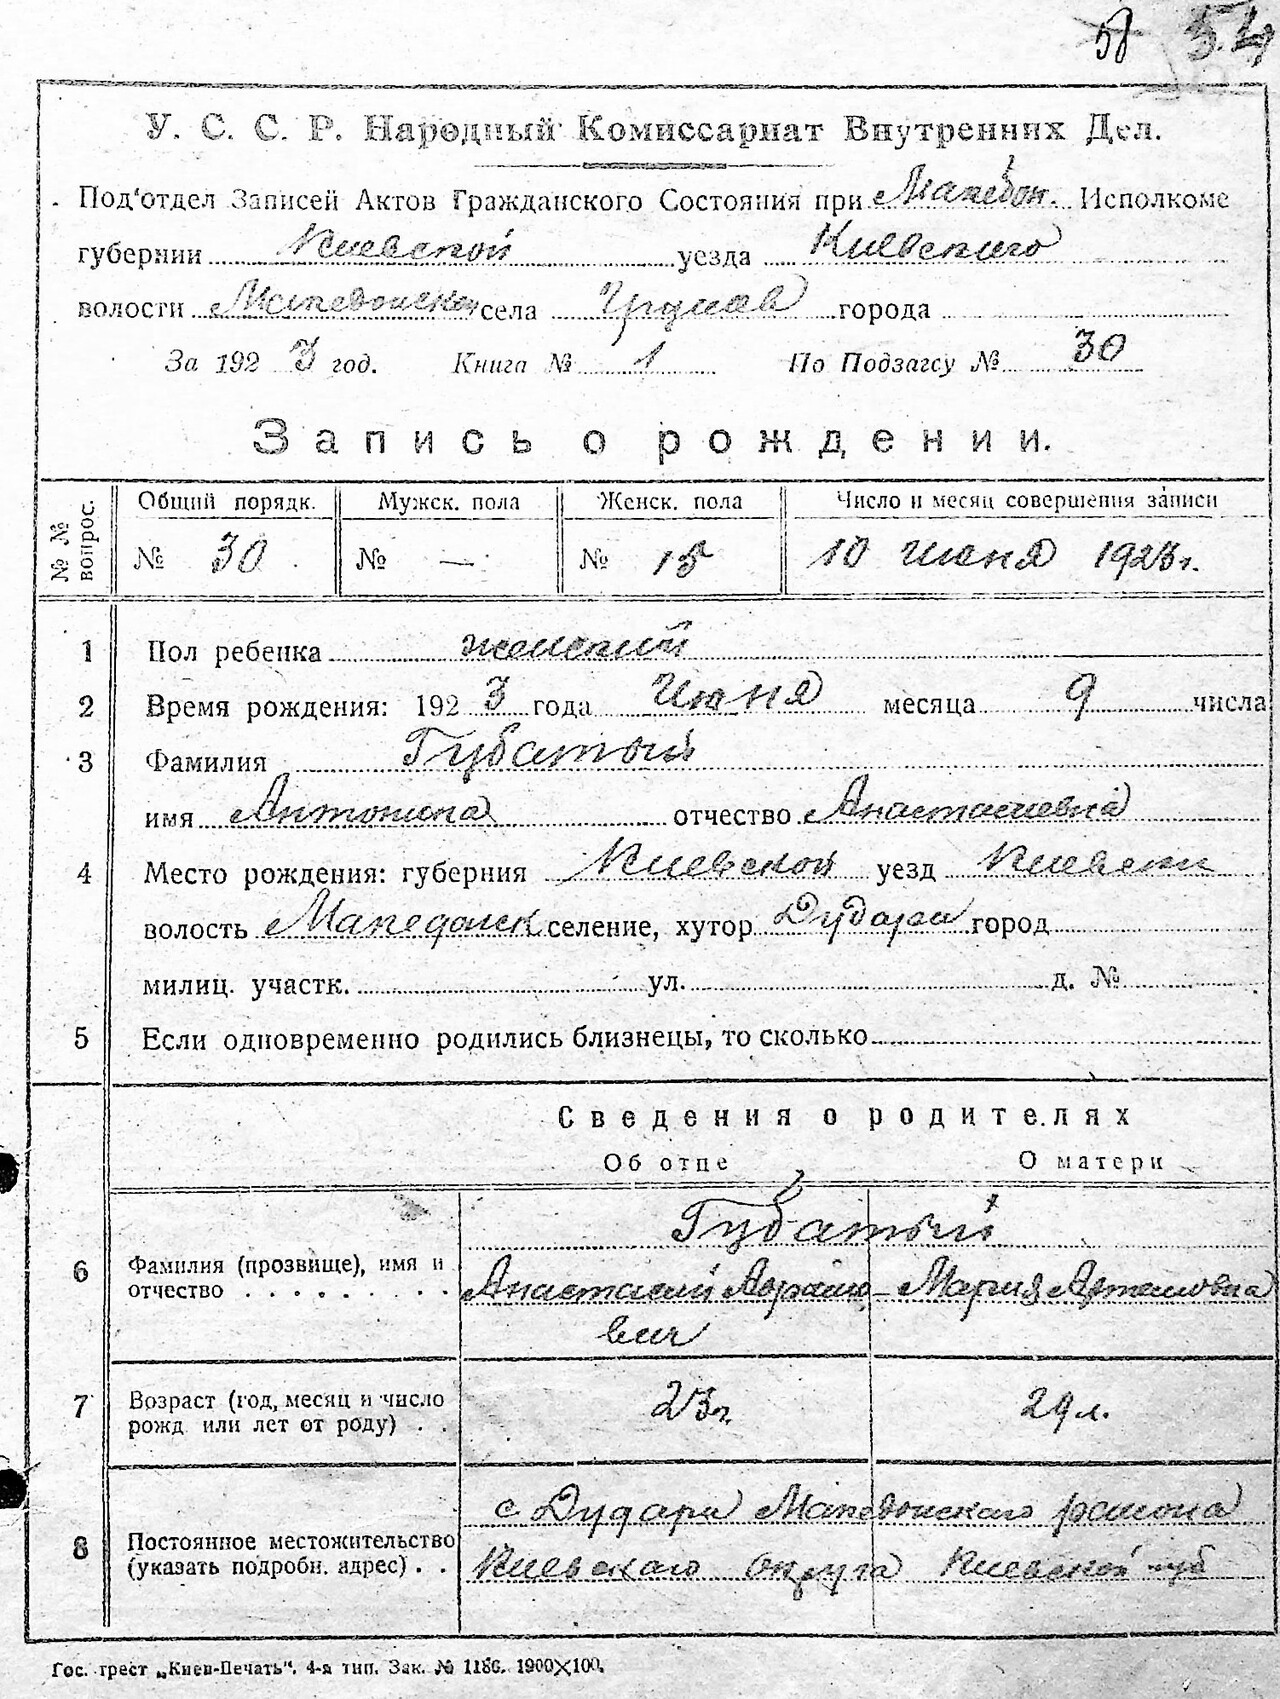 58 54
У. С. С. Р. Народный Комиссариат Внутренних Дел.
Под'отдел Записей Актов Гражданского Состояния при Македон. Исполкоме
губернии Киевской уезда Киевского
волости Македонской села города
За 1923 год. Книга № 1 По Подзагсу № 30
Запись о рождении.
№ № вопрос. Общий порядк. Мужск. пола Женск. пола Число и месяц совершения записи
№ 30 № — № 15 10 Июня 1923 г.
1 Пол ребенка женский
2 Время рождения: 1923 года Июня месяца 9 числа
3 Фамилия Губатый
имя Антонина отчество Анастасиевна
4 Место рождения: губерния Киевской уезд Киевски
волость Македонск селение, хутор Дудари город
милиц. участк. ул. д. №
5 Если одновременно родились близнецы, то сколько
Сведения о родителях
Об отце О матери
Губатый
6 Фамилия (прозвище), имя и
отчество Анастасий Аврамо- Мария Артемовна
вич
7 Возраст (год, месяц и число
рожд или лет от роду) 23 г. 29 л.
с Дудари Македонского района
8 Постоянное местожительство
(указать подробн. адрес) Киевского округа Киевской губ
Гос. трест „Киев-Печать". 4-я тип. Зак. № 1186. 1900×100.